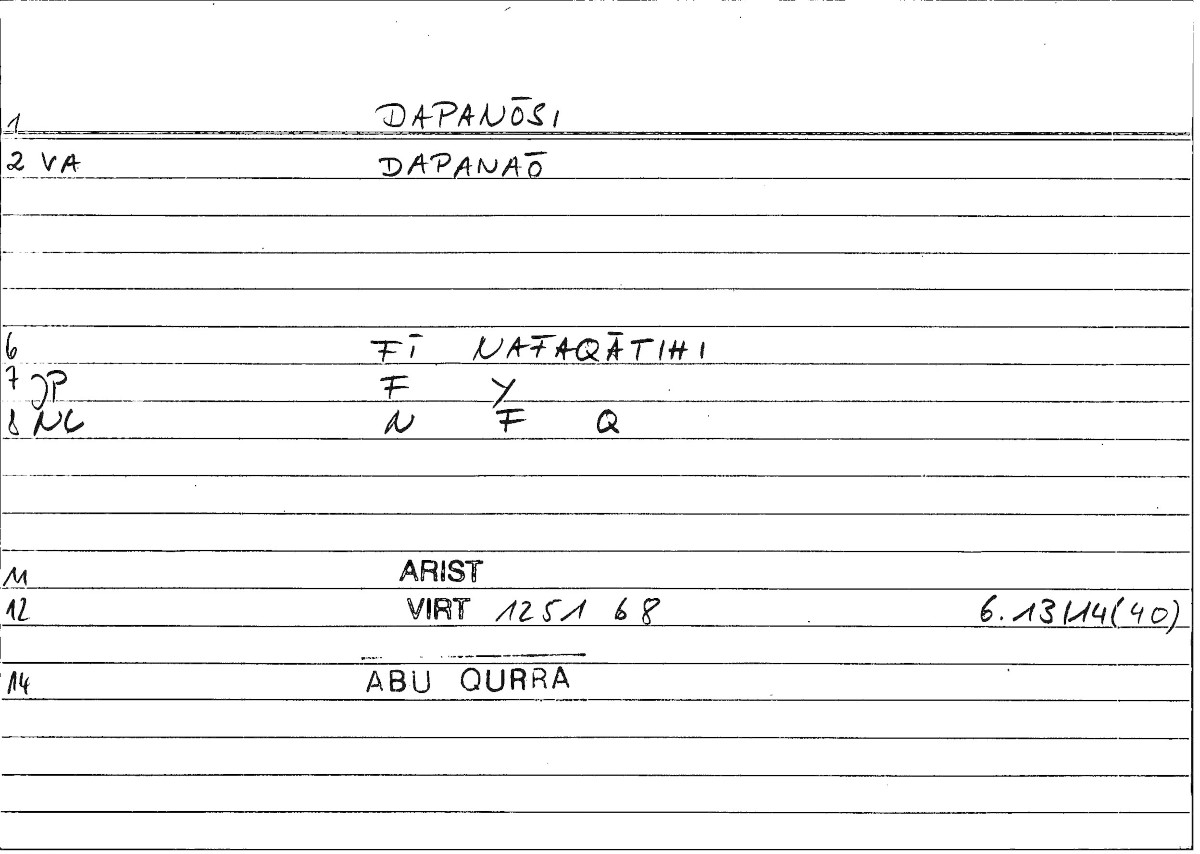 1 DAPANŌSI
2 VA DAPANAŌ
6 FĪ NAFAQĀTIHI
7 JP F Y
8 NL N F Q
11 ARIST
12 VIRT 1251 68 6.13/14(40)
14 ABU QURRA